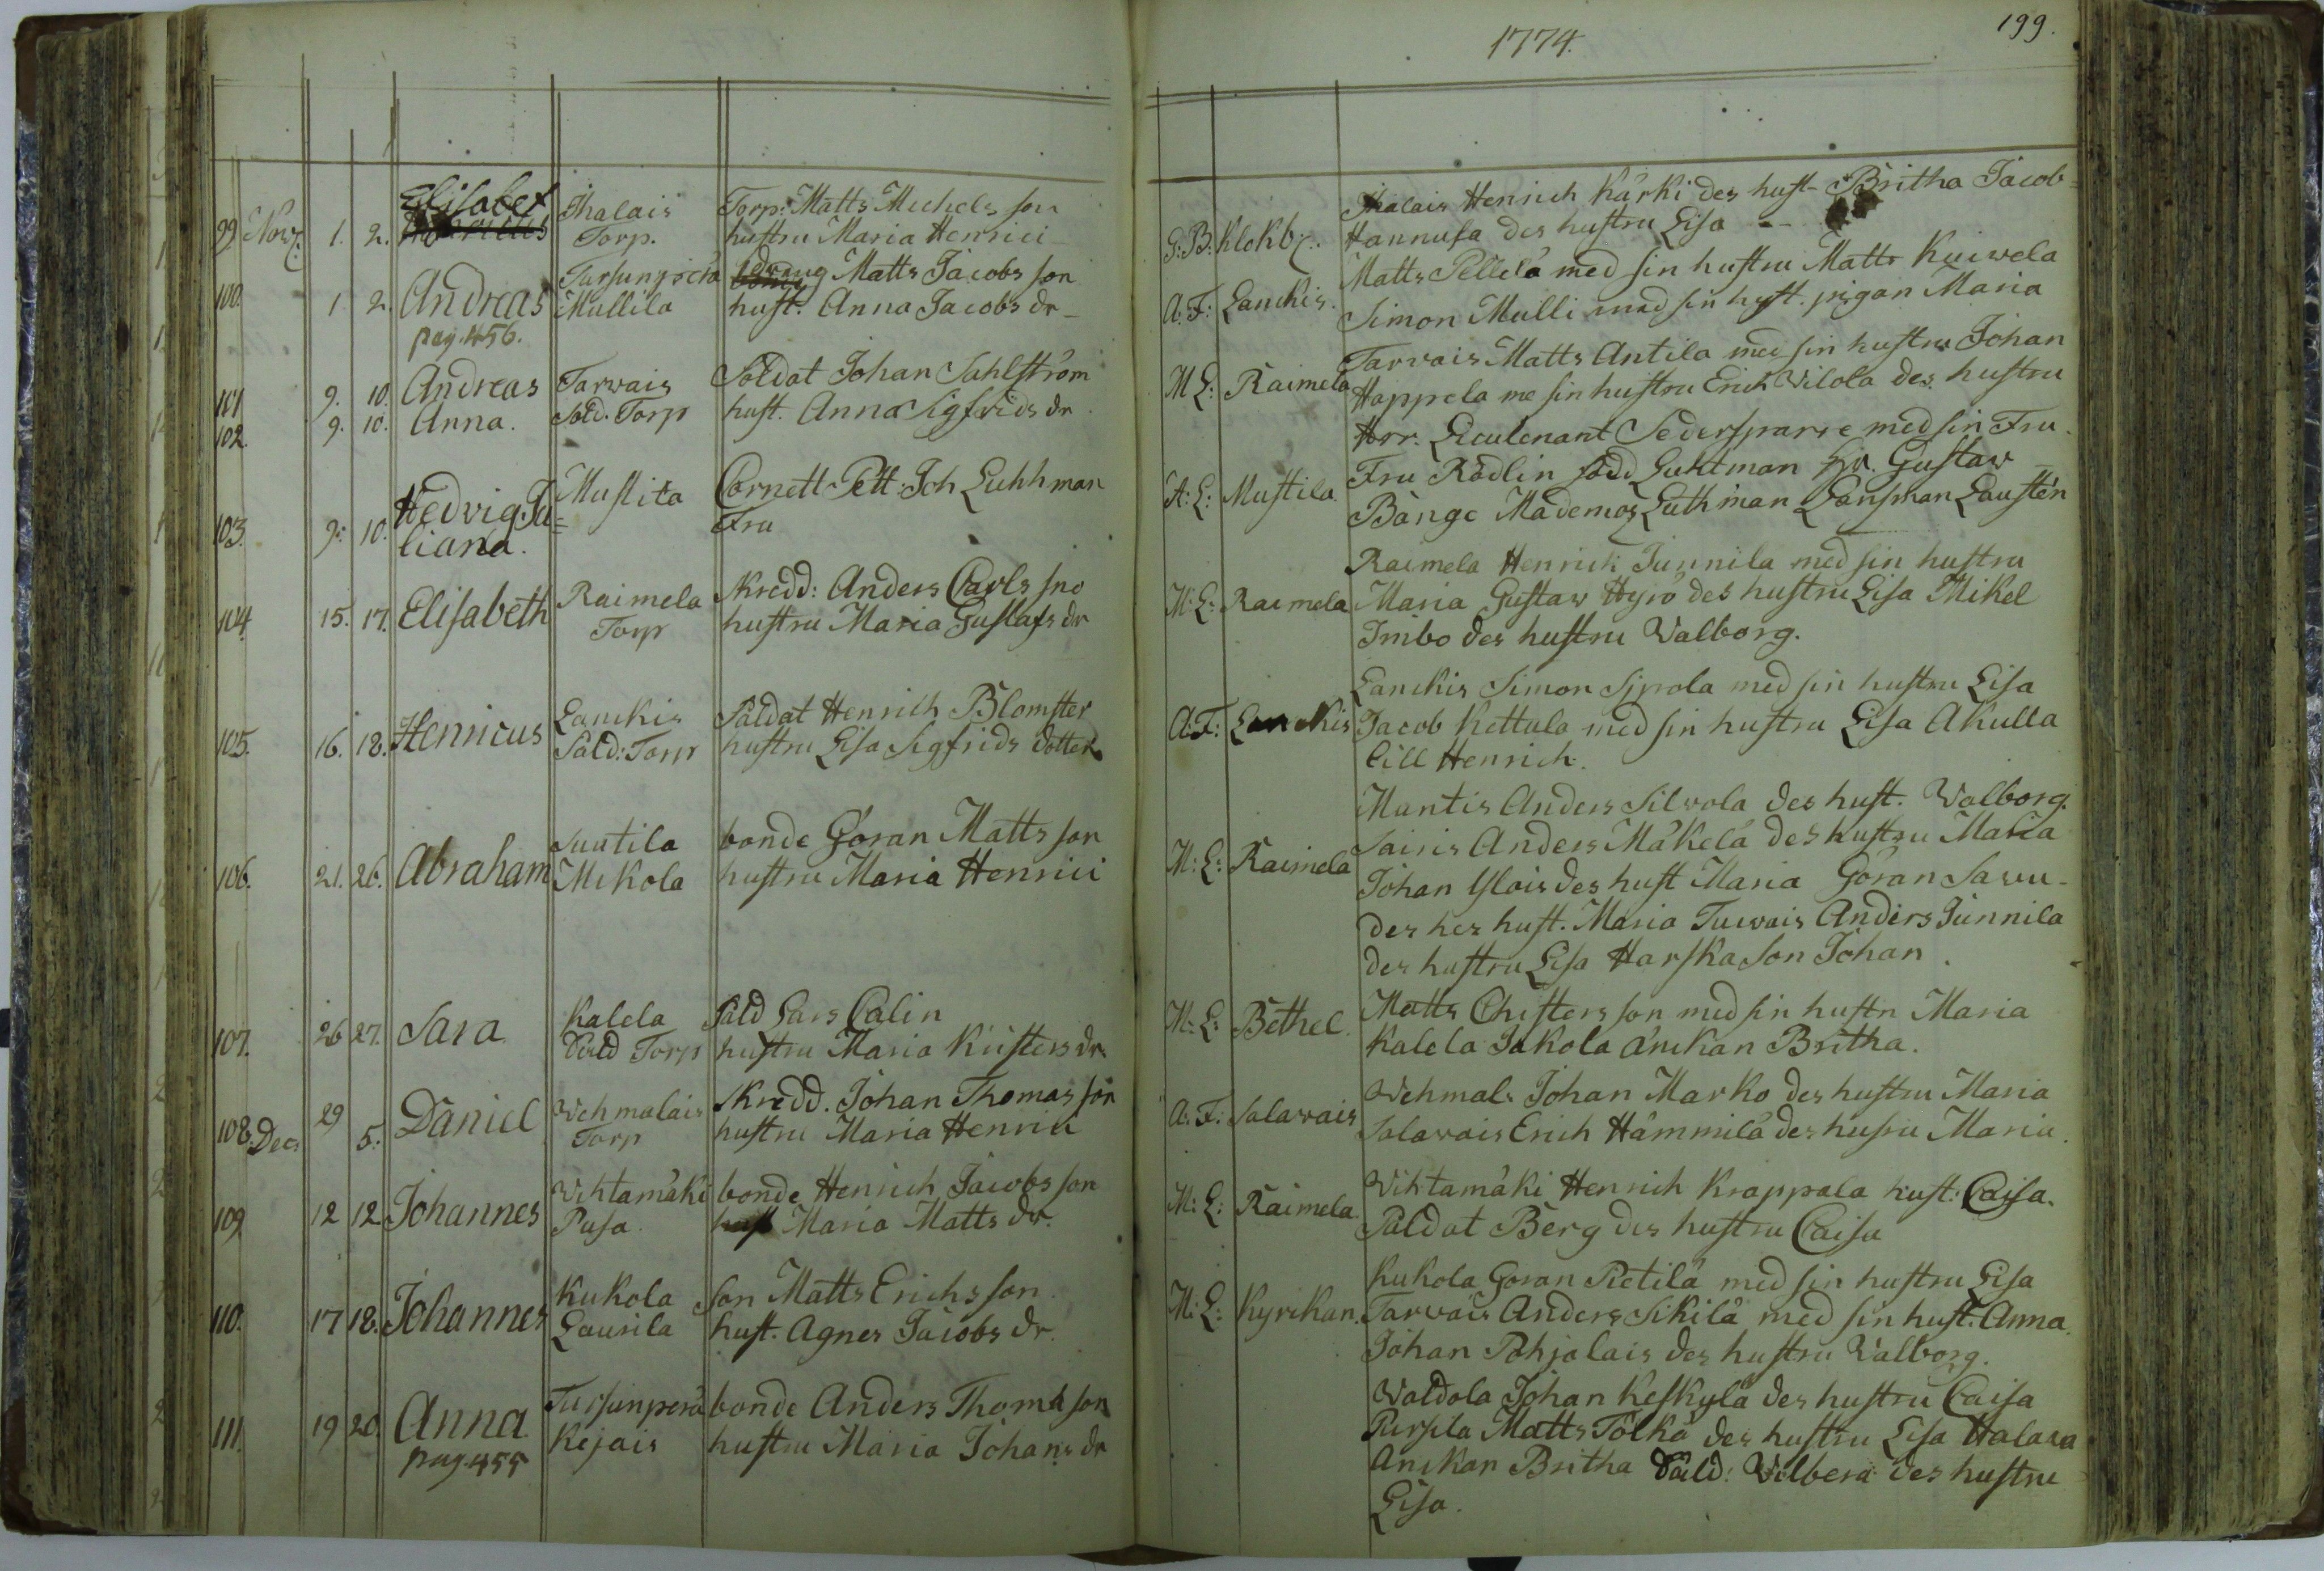 1774.
199.
99 Nov. 1. 2. Elisabet Ihalais Torp: Matts Michels son
Torp. hustru Maria Henrici
100. 1 2. Andreas Tursunperä dräng Matts Jacobs son
pag. 456. Mullila hust. Anna Jacobs dr
101 9. 10. Andreas Tarvais Soldat Johan Sahlström
102. 9. 10. Anna. Sold. Torp hust. Anna Sigfrids dr
103. 9. 10. Hedvig Ju= Mustila Cornett Joh Luhhman
liana. Fru
104 15. 17. Elisabeth Raimela Skredd: Anders Carls sno
Torp hustru Maria Gustafs dr
105. 16. 18. Henricus Lanckis Såldat Henrich Blomster
Såld: Torp hustru Lisa Sigfrids dotter
106. 21. 26. Abraham Suutila bonde Göran Matts son
Mikola hustru Maria Henrici
107. 26 27. Sara Kalela Såld Lars Calin
Såld Torp hustru Maria Kristers dr.
108. Dec. 29 5. Daniel Wehmalais Skredd. Johan Thomas son
Torp hustru Maria Henrici
109. 12 12. Johannes Wihtamäki bonde Henrich Jacobs son
Pusa hust Maria Matts dr.
110. 17 18. Johannes Kukola Son Matts Erichs son
Laurila hust. Agnes Jacobs dr.
111. 19 20. Anna Tursunperä bonde Anders Thoma son
pag. 455 Kejais hustru Maria Johans dr
Ihalais Henrich Kärki des hust- Britha Jacob=
G: B: Klokb. Hannula des hustru Lisa
Matts Pellelä med sin hustru Matts Kuiwela
A. F: Lanckis. Simon Mulli med sin hust. pigan Maria
Tarvais Matts Antila med sin hustru Johan
M L: Raimela Happela me sin hustru Erich Wilola des hustru
Herr. Lieutenant Sedersparre med sin Fru.
Fru Rådlin född Luhtman Hr. Gustav
A: L: Mustila Bånge Mademos Luthman Länsman Laustén
Raimela Henrich Junnila med sin hustru
M: L: Raimela Maria Gustav Hyrö des hustru Lisa Mikel
Imbo des hustru Valborg.
Lanckis Simon Sipola med sin hustru Lisa
A. F: Lanckis Jacob Kettula med sin hustru Lisa Akulla
Lill Henrich.
Mantis Anders Silvola des hust. Walborg.
Sairis Anders Mäkelä des hustru Maria
M: L: Raimela Johan Ylois des hust Maria Göran Savu-
der hes hust. Maria Tuwais Anders Junnila
des hustru Lisa Harska Son Johan
M: L: Bethel. Matts Christers son med sin hustru Maria
Kalela Jakola änckan Britha.
Wehmal. Johan Marko des hustru Maria
A: F: Salavais Salavais Erich Hämmilä des hustru Maria.
Wihtamäki Henrich Krappala hust: Caisa.
M: L: Raimela. Såldat Berg des hustru Caisa
Kukola Göran Pietilä med sin hustru Lisa
M: L: Kyrckan. Tarvais Anders Sikilä med sin hust. Anna.
Johan Pohjalais des hustru Walborg.
Waldola Johan Keskylä des hustru Caisa
Pursila Matts Tölkä des hustru Lisa Halava
Anckan Britha Såld: Wilbera des hustru
Lisa.